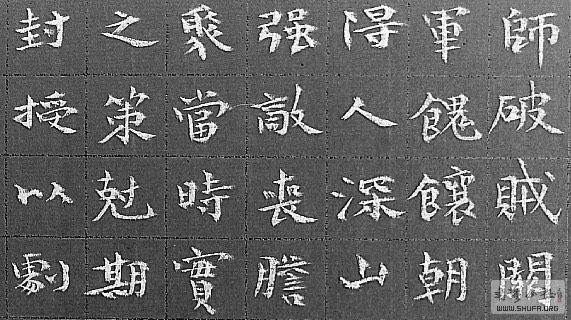 師破賊關
軍餽饟朝
得人深山
强敵喪膽
聚當時實
之策尅期
封授以劇
WWW.SHUFA.ORG